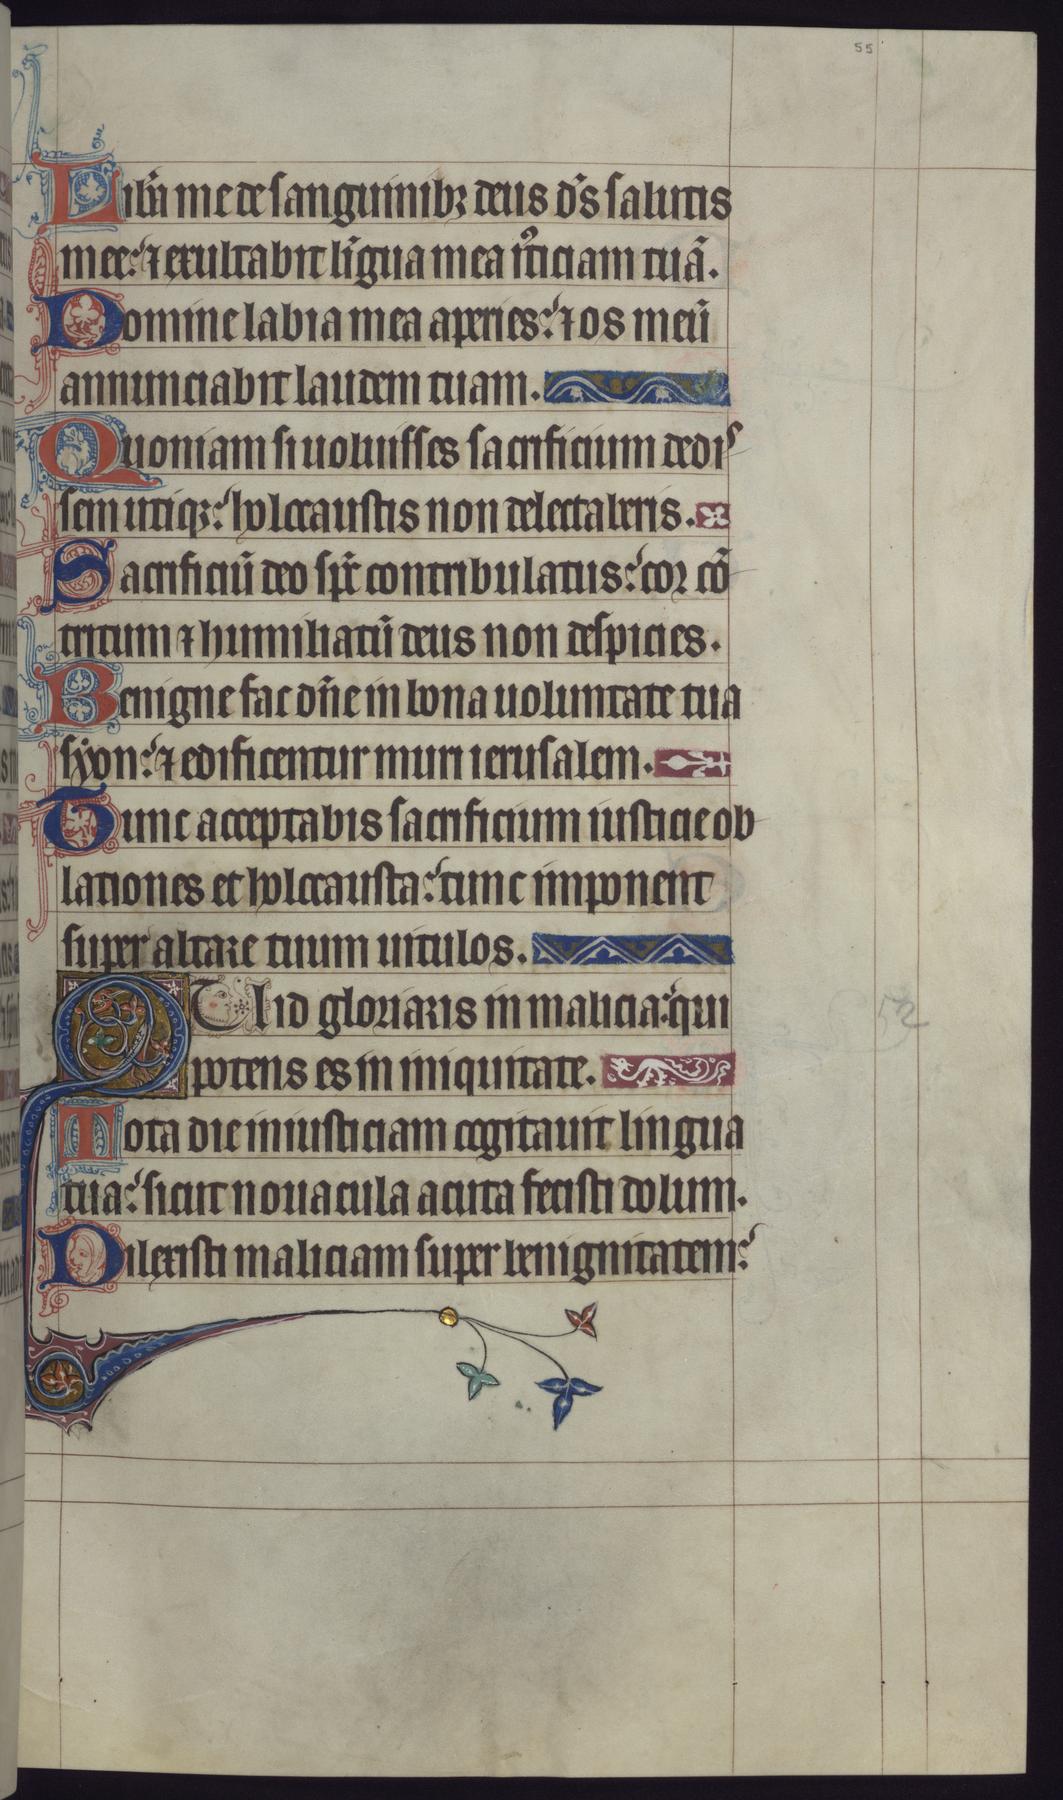 55
Lib̃a me de sanguinibꝫ deus d̃s salutis
mee: ⁊ exultabit lĩgua mea iꝰticiam tuã.
Domine labia mea aperies: ⁊ os meũ
annunciabit laudem tuam.
Quoniam si uoluisses sacrificium dedis
sem utiqꝫ: holocaustis non delectaberis.
Sacrificiũ deo sp̃c contribulatus: cor cõ
tritum ⁊ humiliatũ deus non despicies.
Benigne fac dñe in bona uoluntate tua
syon: ⁊ edificentur muri ierusalem.
Tunc acceptabis sacrificium iusticie ob
lationes et holocausta: tunc imponent
super altare tuum uitulos.
QUid gloriaris in malicia: qui
potens es in iniquitate.
Tota die iniusticiam cogitauit lingua
tua: sicut nouacula acuta fecisti dolum.
Dilexisti maliciam super benignitatem:
52